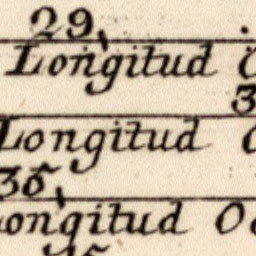 29,
Longitud
3
Longitud
35,
Longitud